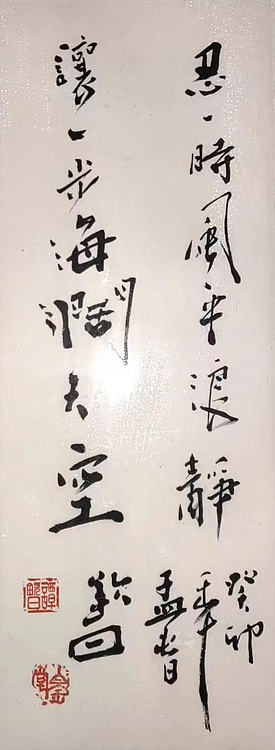 忍一時風平浪靜
讓一步海濶天空
癸卯
年
孟春日